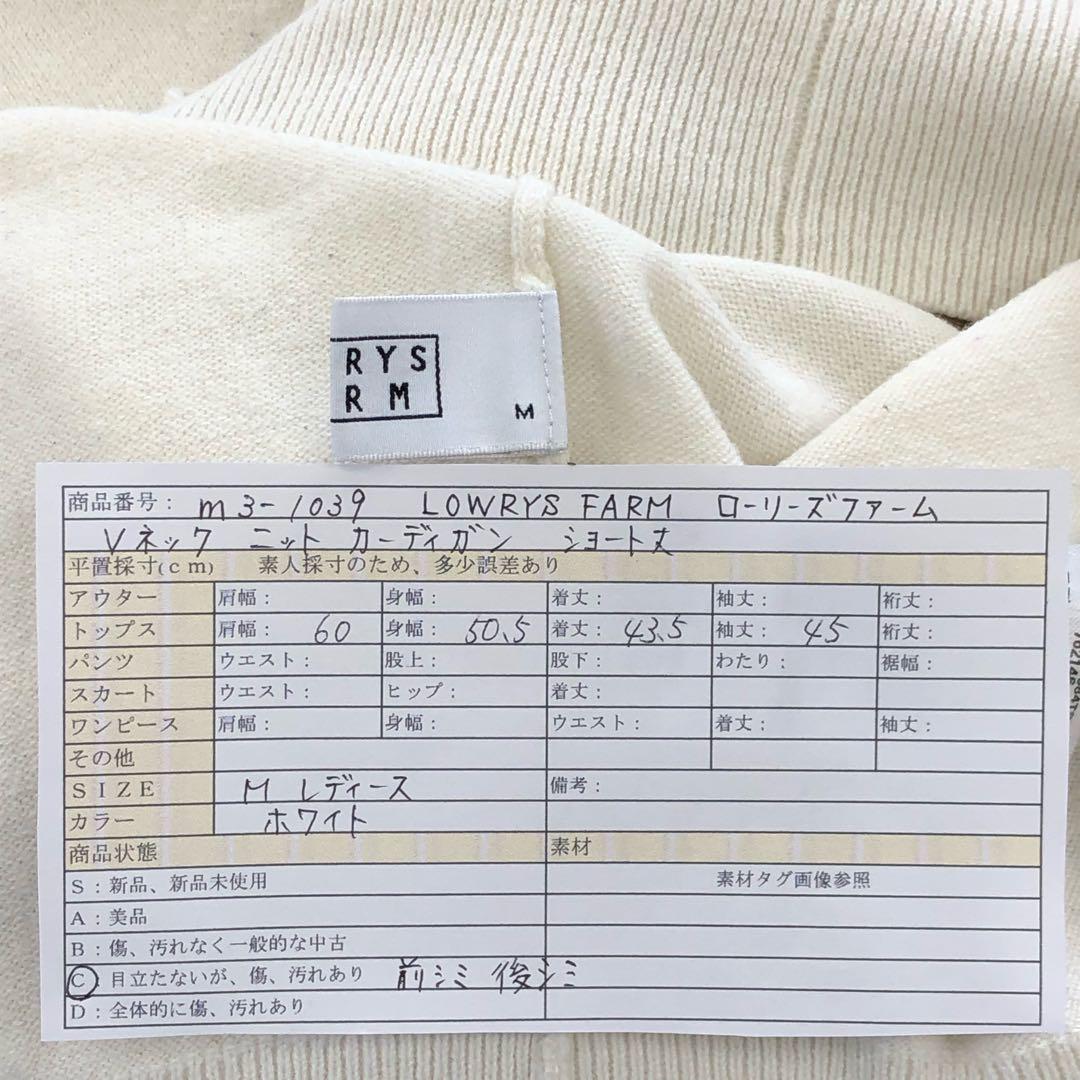 RYS
RM
M
商品番号： m3-1039 LOWRYS FARM ローリーズファーム
Vネック ニット カーディガン ショート丈
平置採寸(cm) 素人採寸のため、多少誤差あり
アウター 肩幅： 身幅： 着丈： 袖丈： 裄丈：
トップス 肩幅： 60 身幅： 50.5 着丈： 43.5 袖丈： 45 裄丈：
パンツ ウエスト： 股上： 股下： わたり： 裾幅：
スカート ウエスト： ヒップ： 着丈：
ワンピース 肩幅： 身幅： ウエスト： 着丈： 袖丈：
その他
SIZE M レディース 備考：
カラー ホワイト
商品状態 素材
S：新品、新品未使用 素材タグ画像参照
A：美品
B：傷、汚れなく一般的な中古
C：目立たないが、傷、汚れあり 前シミ 後シミ
D：全体的に傷、汚れあり